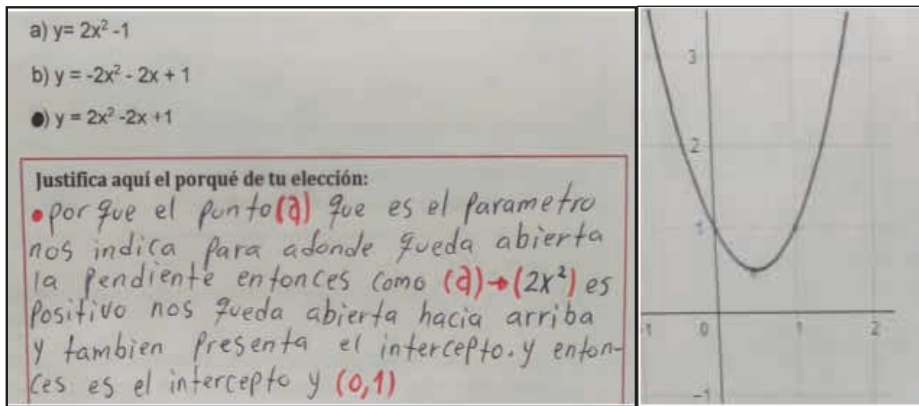 a) y= 2x² -1
b) y = -2x² - 2x + 1
) y = 2x² -2x +1
Justifica aquí el porqué de tu elección:
• por que el punto (a) que es el parametro
nos indica para adonde queda abierta
la pendiente entonces como (a)→(2x²) es
positivo nos queda abierta hacia arriba
y tambien presenta el intercepto. y enton-
ces es el intercepto y (0,1)
3
2
1
-1 0 1 2
-1